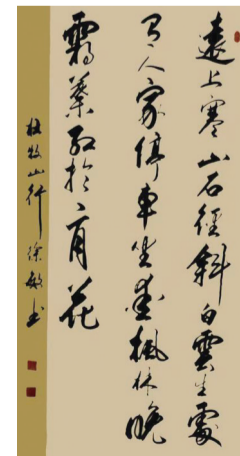 遠上寒山石徑斜白雲生處
有人家停車坐愛楓林晚
霜葉紅於二月花
杜牧山行徐敏书